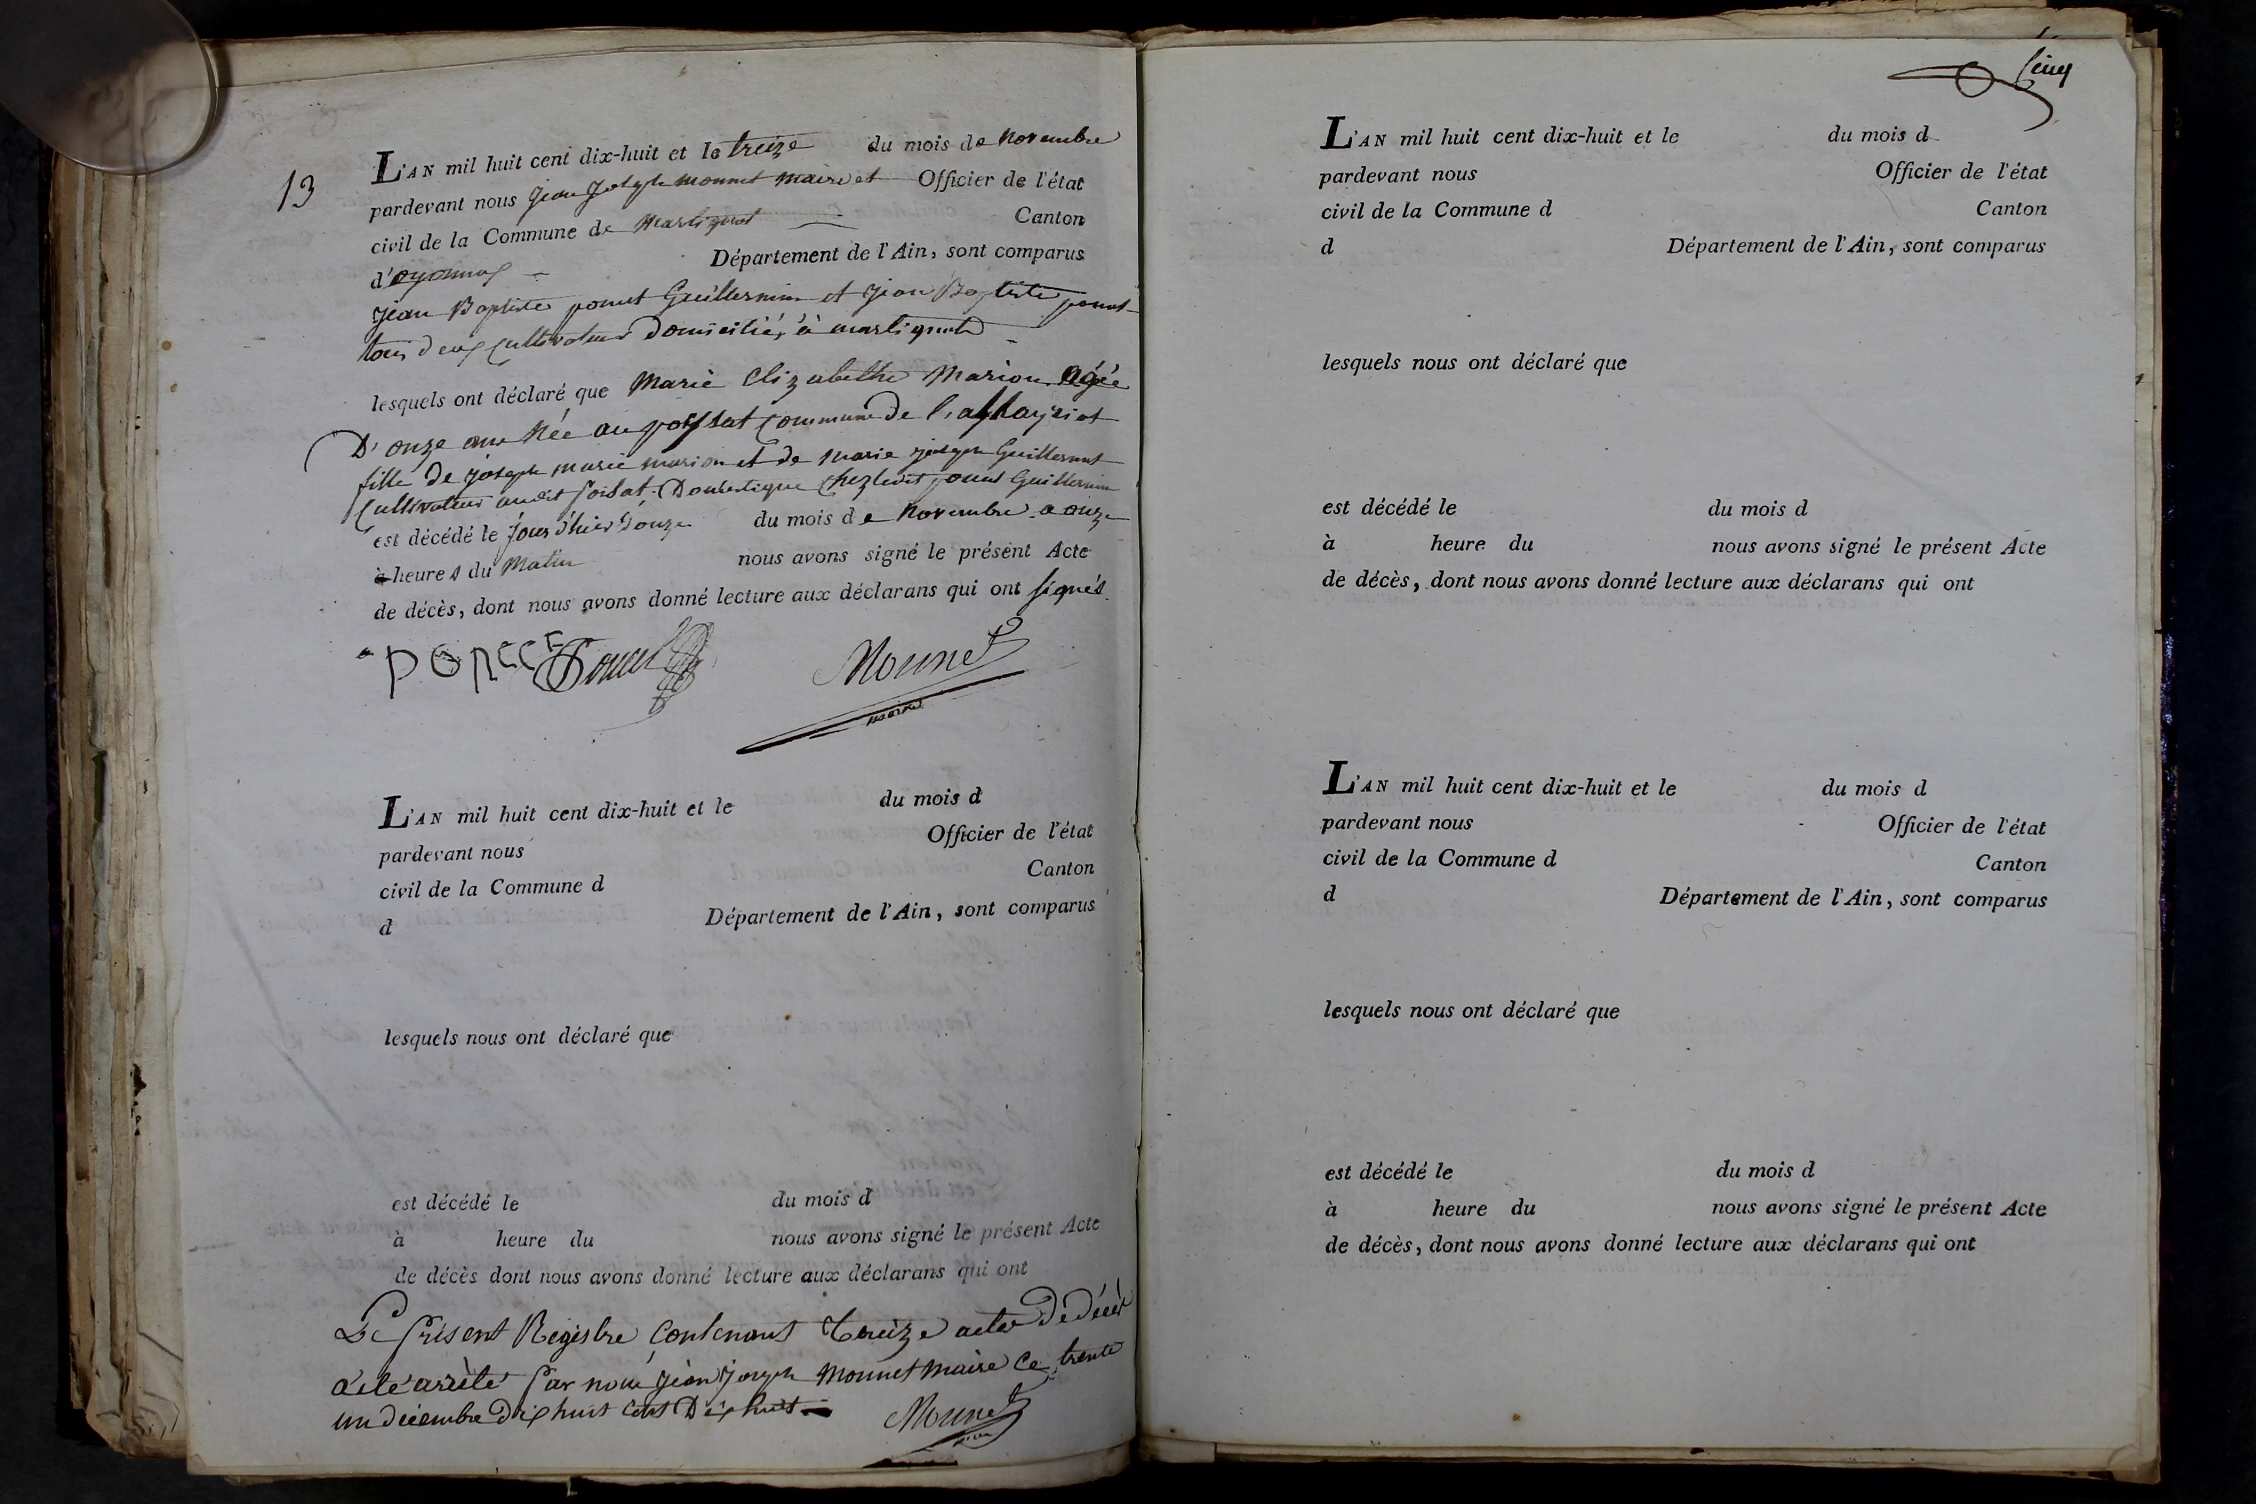 13
L'AN mil huit cent dix-huit et le treize du mois de novembre
pardevant nous jean joseph monnet maire et Officier de l'état
civil de la Commune de martignat Canton
d'oyonnax Département de l'Ain, sont comparus
jean Baptiste poncet Guillermin et jean Baptiste poncet
tous deux cultivateurs domiciliés à martignat
lesquels ont déclaré que marie elizabethe marion agée
D'onze ans née au poisat commune de
fille de joseph marie marion et de marie joseph Guillermet
cultivateurs audit poisat Domestique chez ledit poncet Guillermin
est décédé le jour d'hier douze du mois de novembre a onze
à heures du matin nous avons signé le présent Acte
de décès, dont nous avons donné lecture aux déclarans qui ont signés.
PONCET Poncet Monnet
maire
L'AN mil huit cent dix-huit et le du mois d
pardevant nous Officier de l'état
civil de la Commune d Canton
d Département de l'Ain, sont comparus
lesquels nous ont déclaré que
est décédé le du mois d
à heure du nous avons signé le présent Acte
de décès dont nous avons donné lecture aux déclarans qui ont
Le présent Registre contenant treize actes de décès
a été arrêté par nous jean joseph monnet maire ce trente
un décembre dix huit cent Dix huit
Monnet
L'AN mil huit cent dix-huit et le du mois d
pardevant nous Officier de l'état
civil de la Commune d Canton
d Département de l'Ain, sont comparus
lesquels nous ont déclaré que
est décédé le du mois d
à heure du nous avons signé le présent Acte
de décès, dont nous avons donné lecture aux déclarans qui ont
L'AN mil huit cent dix-huit et le du mois d
pardevant nous Officier de l'état
civil de la Commune d Canton
d Département de l'Ain, sont comparus
lesquels nous ont déclaré que
est décédé le du mois d
à heure du nous avons signé le présent Acte
de décès, dont nous avons donné lecture aux déclarans qui ont